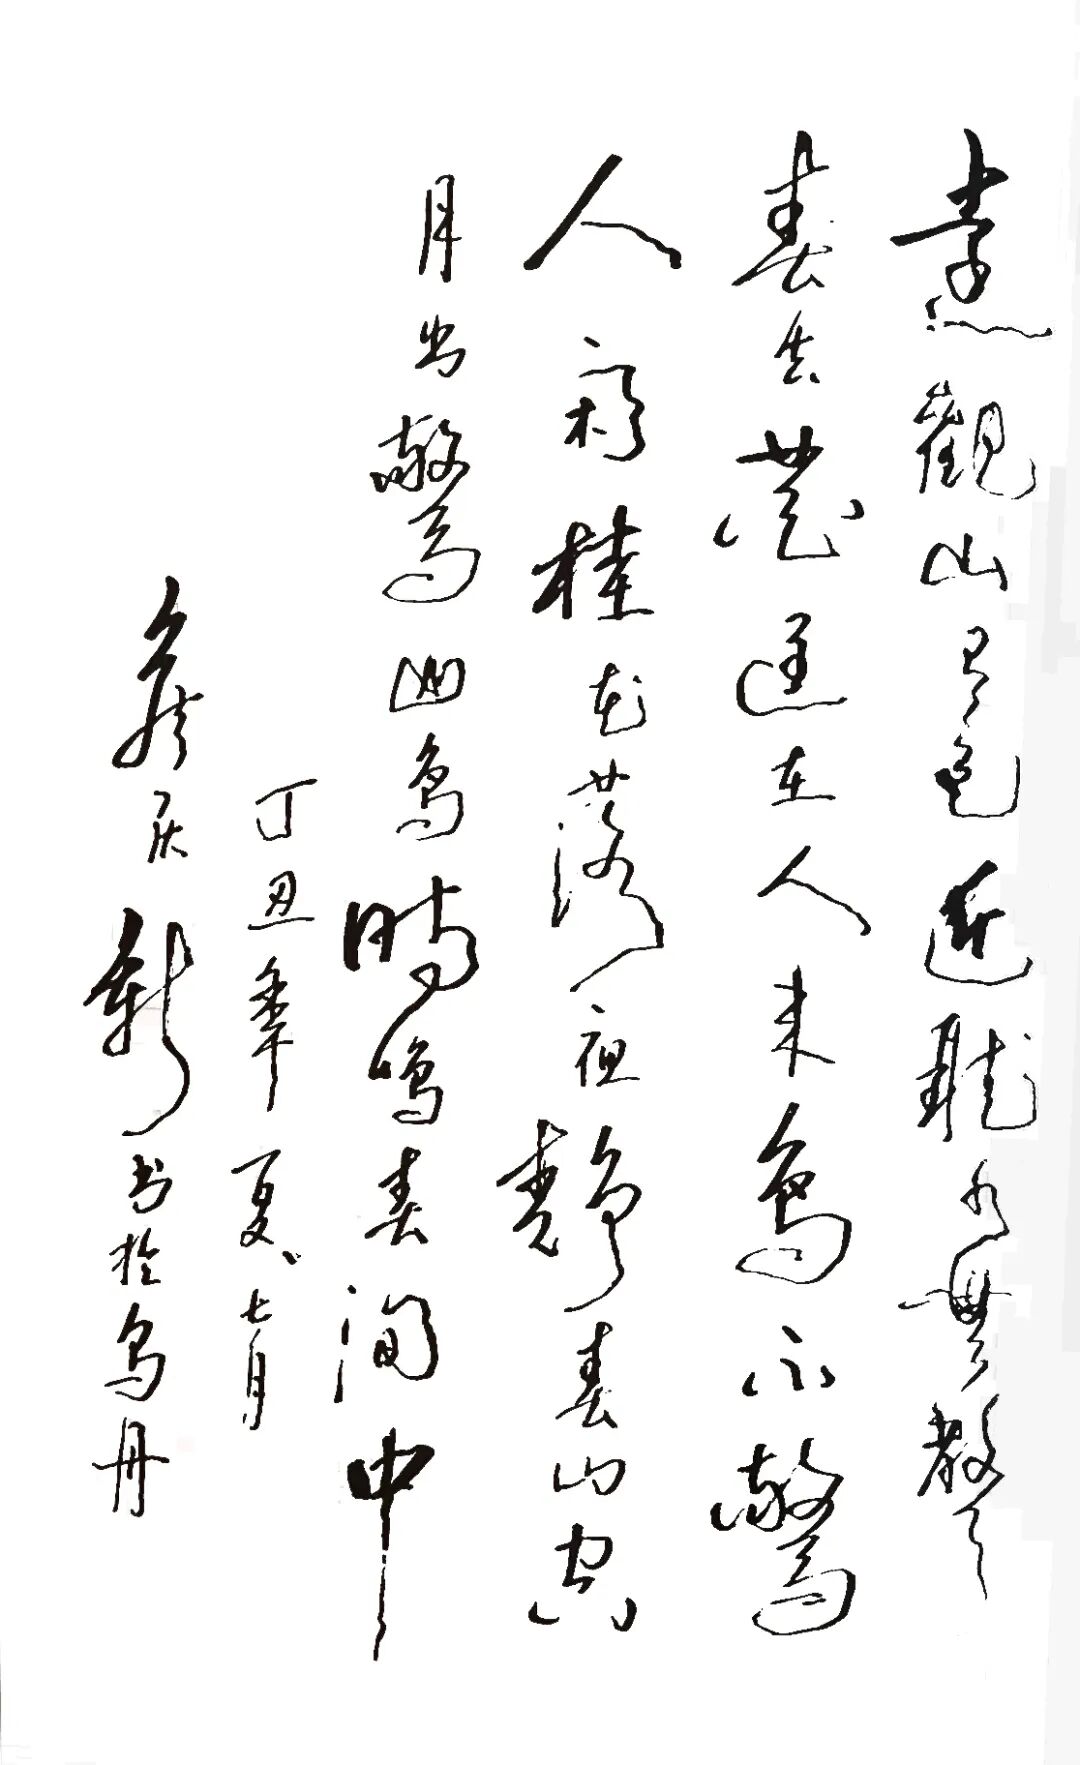 遠觀山有色近聽水無聲
春去花還在人來鳥不驚
人閑桂花落夜靜春山空
月出驚山鳥時鳴春澗中
丁丑年夏、七月
庆新书於乌丹